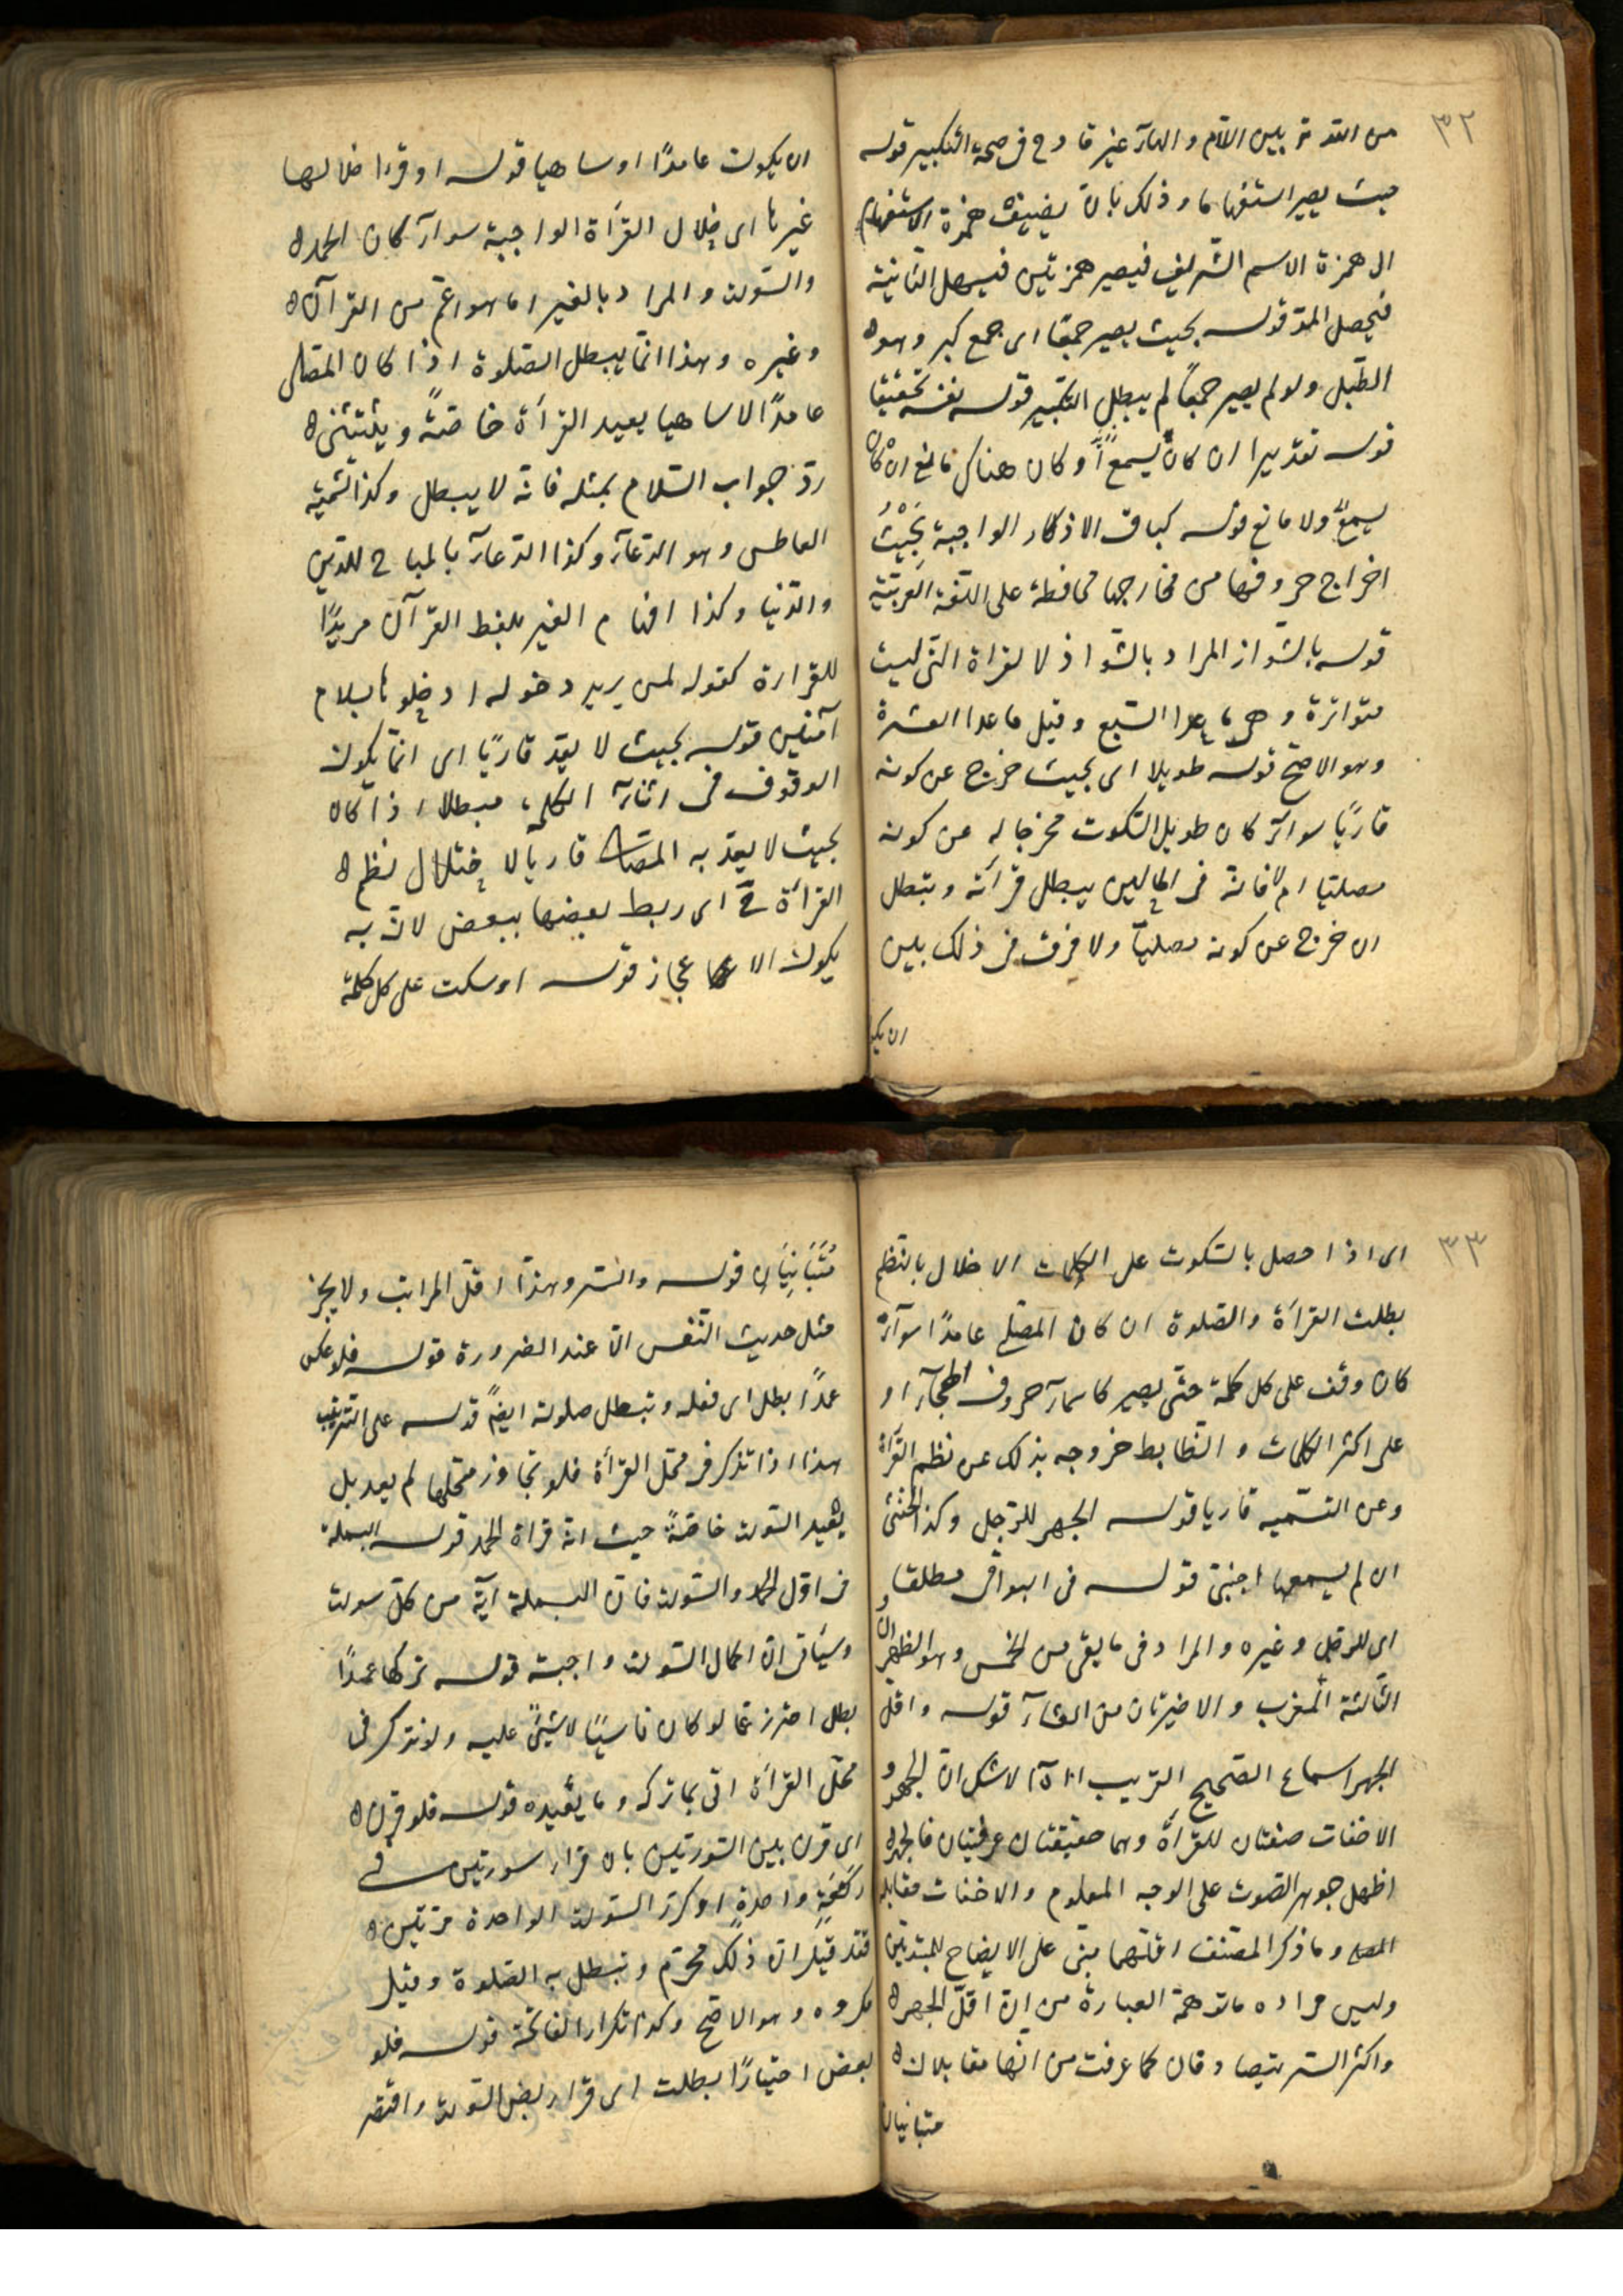 ٣٢
من المد بين اللام والهآء غير قادح فى صحة التكبير قوله
حيث يصير استفهاما وذلك بان يضيف همزة الاستفهام
الى همزة الاسم الشريف فيصير همزتين فيسهل الثانية
فيحصل المدّ قوله بحيث يصير جمعًا اى جمع كبر وهو
الطّبل ولو لم يصير جمعًا لم يبطل التكبير قوله نفسه تحقيقا
قوله تقديرا ان كان يسمع او كان هناك مانع ان كان
يسمع ولا مانع قوله كباقى الاذكار الواجبة بَحَيْثُ
اخراج حروفها من مخارجها محافظة على اللغة العربيّة
قوله بالشواز المراد بالشواذ لا لقراة التى ليست
متواترة وهى ما عدا السّبع وقيل ما عدا العشرة
وهو الاصحّ قوله طويلا اى بحيث خرج عن كونه
قاريًا سوآء كان طويل السّكوت مخرجا له عن كونه
مصليا ام لا فانه فى الحالين يبطل قرأته وتبطل
ان خرج عن كونه مصليًا ولا فرق فى ذلك بين
ان يكو
ان يكون عامدًا او ساهيا قوله او قرءا خلالها
غيرها اى خلال القرأة الواجبة سوآء كان الحمد
والسّورة والمراد بالغير ما هو اعمّ من القرآن
وغيره وهذا انّما يبطل الصّلوة اذا كان المصلى
عامدًا لا ساهيا يعيد القرأة خاصّةً ويستثنى
ردّ جواب السّلام بمثله فانّه لا يبطل وكذا تسميّه
العاطس وهو الدّعآء وكذا الدّعآء بالمباح للدّين
والدّنيا وكذا افهام الغير بلفظ القرآن مريدًا
للقرارة كقوله لمن يريد دخوله ادخلوها بسلام
آمنين قوله بحيث لا يعدّ قاريًا اى انّما يكون
الوقوف فى اثنآء الكلمة مبطلا اذا كان
بحيث لا يعدّ به المصلى قاريا لاختلال نظم
القرأة ح اى ربط بعضها ببعض لانّ به
يكون الاعجاز قوله او سكت على كل كلمة
٣٣
اى اذا حصل بالسّكوت على الكلمات الاخلال بالنّظم
بطلت القرأة والصّلوة ان كان المصلى عامدًا سوآءً
كان وقف على كل كلمة حتى يصير كاسمآء حروف الهجآء او
على اكثر الكلمات والضّابط خروجه بذلك عن نظم القرأة
وعن التّسميه قاريا قوله الجهر للرّجل وكذا الخنثى
ان لم يسمعها اجنبىّ قوله فى البواقى مطلقا
اى للرّجل وغيره والمراد فى ما بقى من الخمس وهو الظهران و
الثالثة المغرب والاخيرتان من العشآء قوله واقلّ
الجهر اسماع الصّحيح القريب اذا لا شكّ انّ الجهر و
الاخفات صفتان للقرأة وهما حقيقتان عرفيّتان فالجهر
اظهار جوهر الصّوت على الوجه المعلوم والاخفات مقابله
وما ذكر المصنّف اقلّهما مبنى على الايضاح للمبتدئين
وليس مراده ما توهمه العبارة من انّ اقلّ الجهر
واكثر السّر يتصادقان كما عرفت من انّهما مقابلان
متبانيان
مُتَبَانِيَانِ قوله والسّر وهذا اقلّ المراتب ولا يجز
مثل حديث النّفس الّا عند الضرورة قوله فلو عكس
عمدًا بطل اى فعله وتبطل صلوته ايضًا قوله على الترتيب
هذا اذا تذكر فى محلّ القرأة فلو تجاوز محلّها لم يعد بل
يعيد السّورة خاصّةً حيث انّه قراة الحمد قوله البسملة
فى اوّل الحمد والسّورة فانّ البسملة آية من كلّ سورة
وسيأتى انّ اكمال السّورة واجبة قوله تركها عمدًا
بطل احترز عمّا لو كان ناسيًا لا شيئً عليه ولو تذكر فى
محلّ القرأة اتى بما تركه وما يعيده قوله فلو قرن
اى قرن بين السّورتين بان قرا سورتين فى
رَكْعَةٍ واحدةٍ او كرّر السّورة الواحدة مرّتين
فقد قيل انّ ذلك محرّم وتبطل به الصّلوة وقيل
مكروه وهو الاصحّ وكذا تكرار الفاتحة قوله فلو
بعض اختيارًا بطلت اى قرا بعض السّورة واقتصر